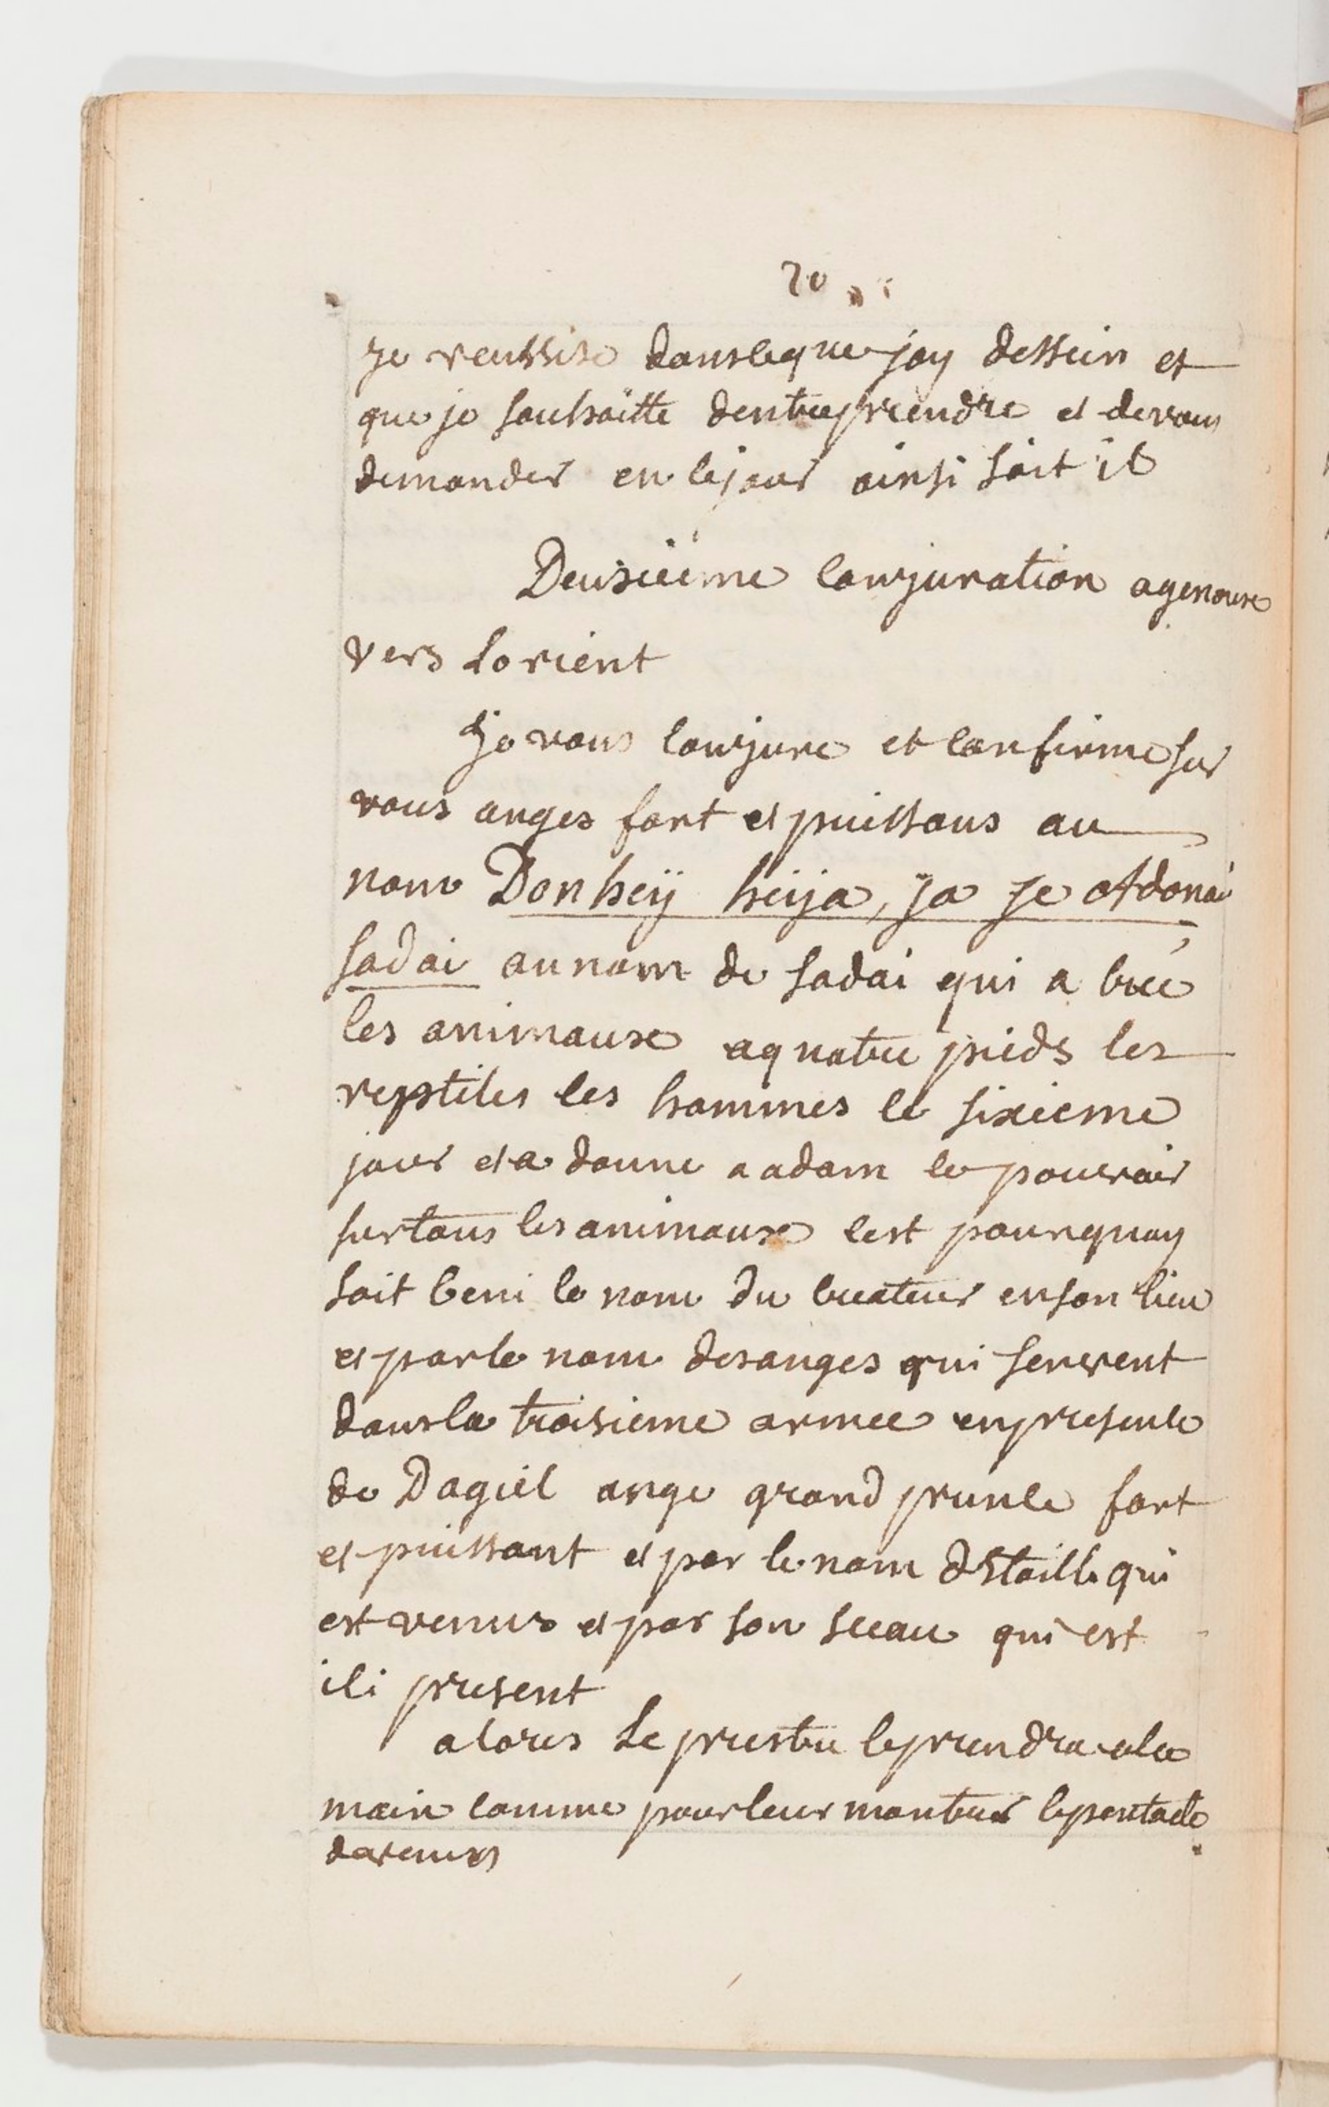 20
je reussise dans ce que jay dessein et
que je souhaitte dentreprendre et de vous
demander en ce jour ainsi soit il
Deusiéme conjuration agenoux
vers Lorient
Je vous conjure et confirme sur
vous anges fort et puissans au
nom Donheÿ heÿa, Ja Je Adonai
sadai au nom de sadai qui a creé
les animaux a quatre pieds les
reptiles les hommes le sixieme
jour et a donne a adam le pouvoir
sur tous les animaux cest pourquoy
soit beni le nom du createur en son lieu
et par le nom des anges qui servent
dans la troisieme armee en presence
de Dagiel ange grand prince fort
et puissant et par le nom dStoille qui
est venus et par son sceau qui est
ici present
alors Le prestre le prendra a la
main comme pour leur montrer le pentacle
de venus